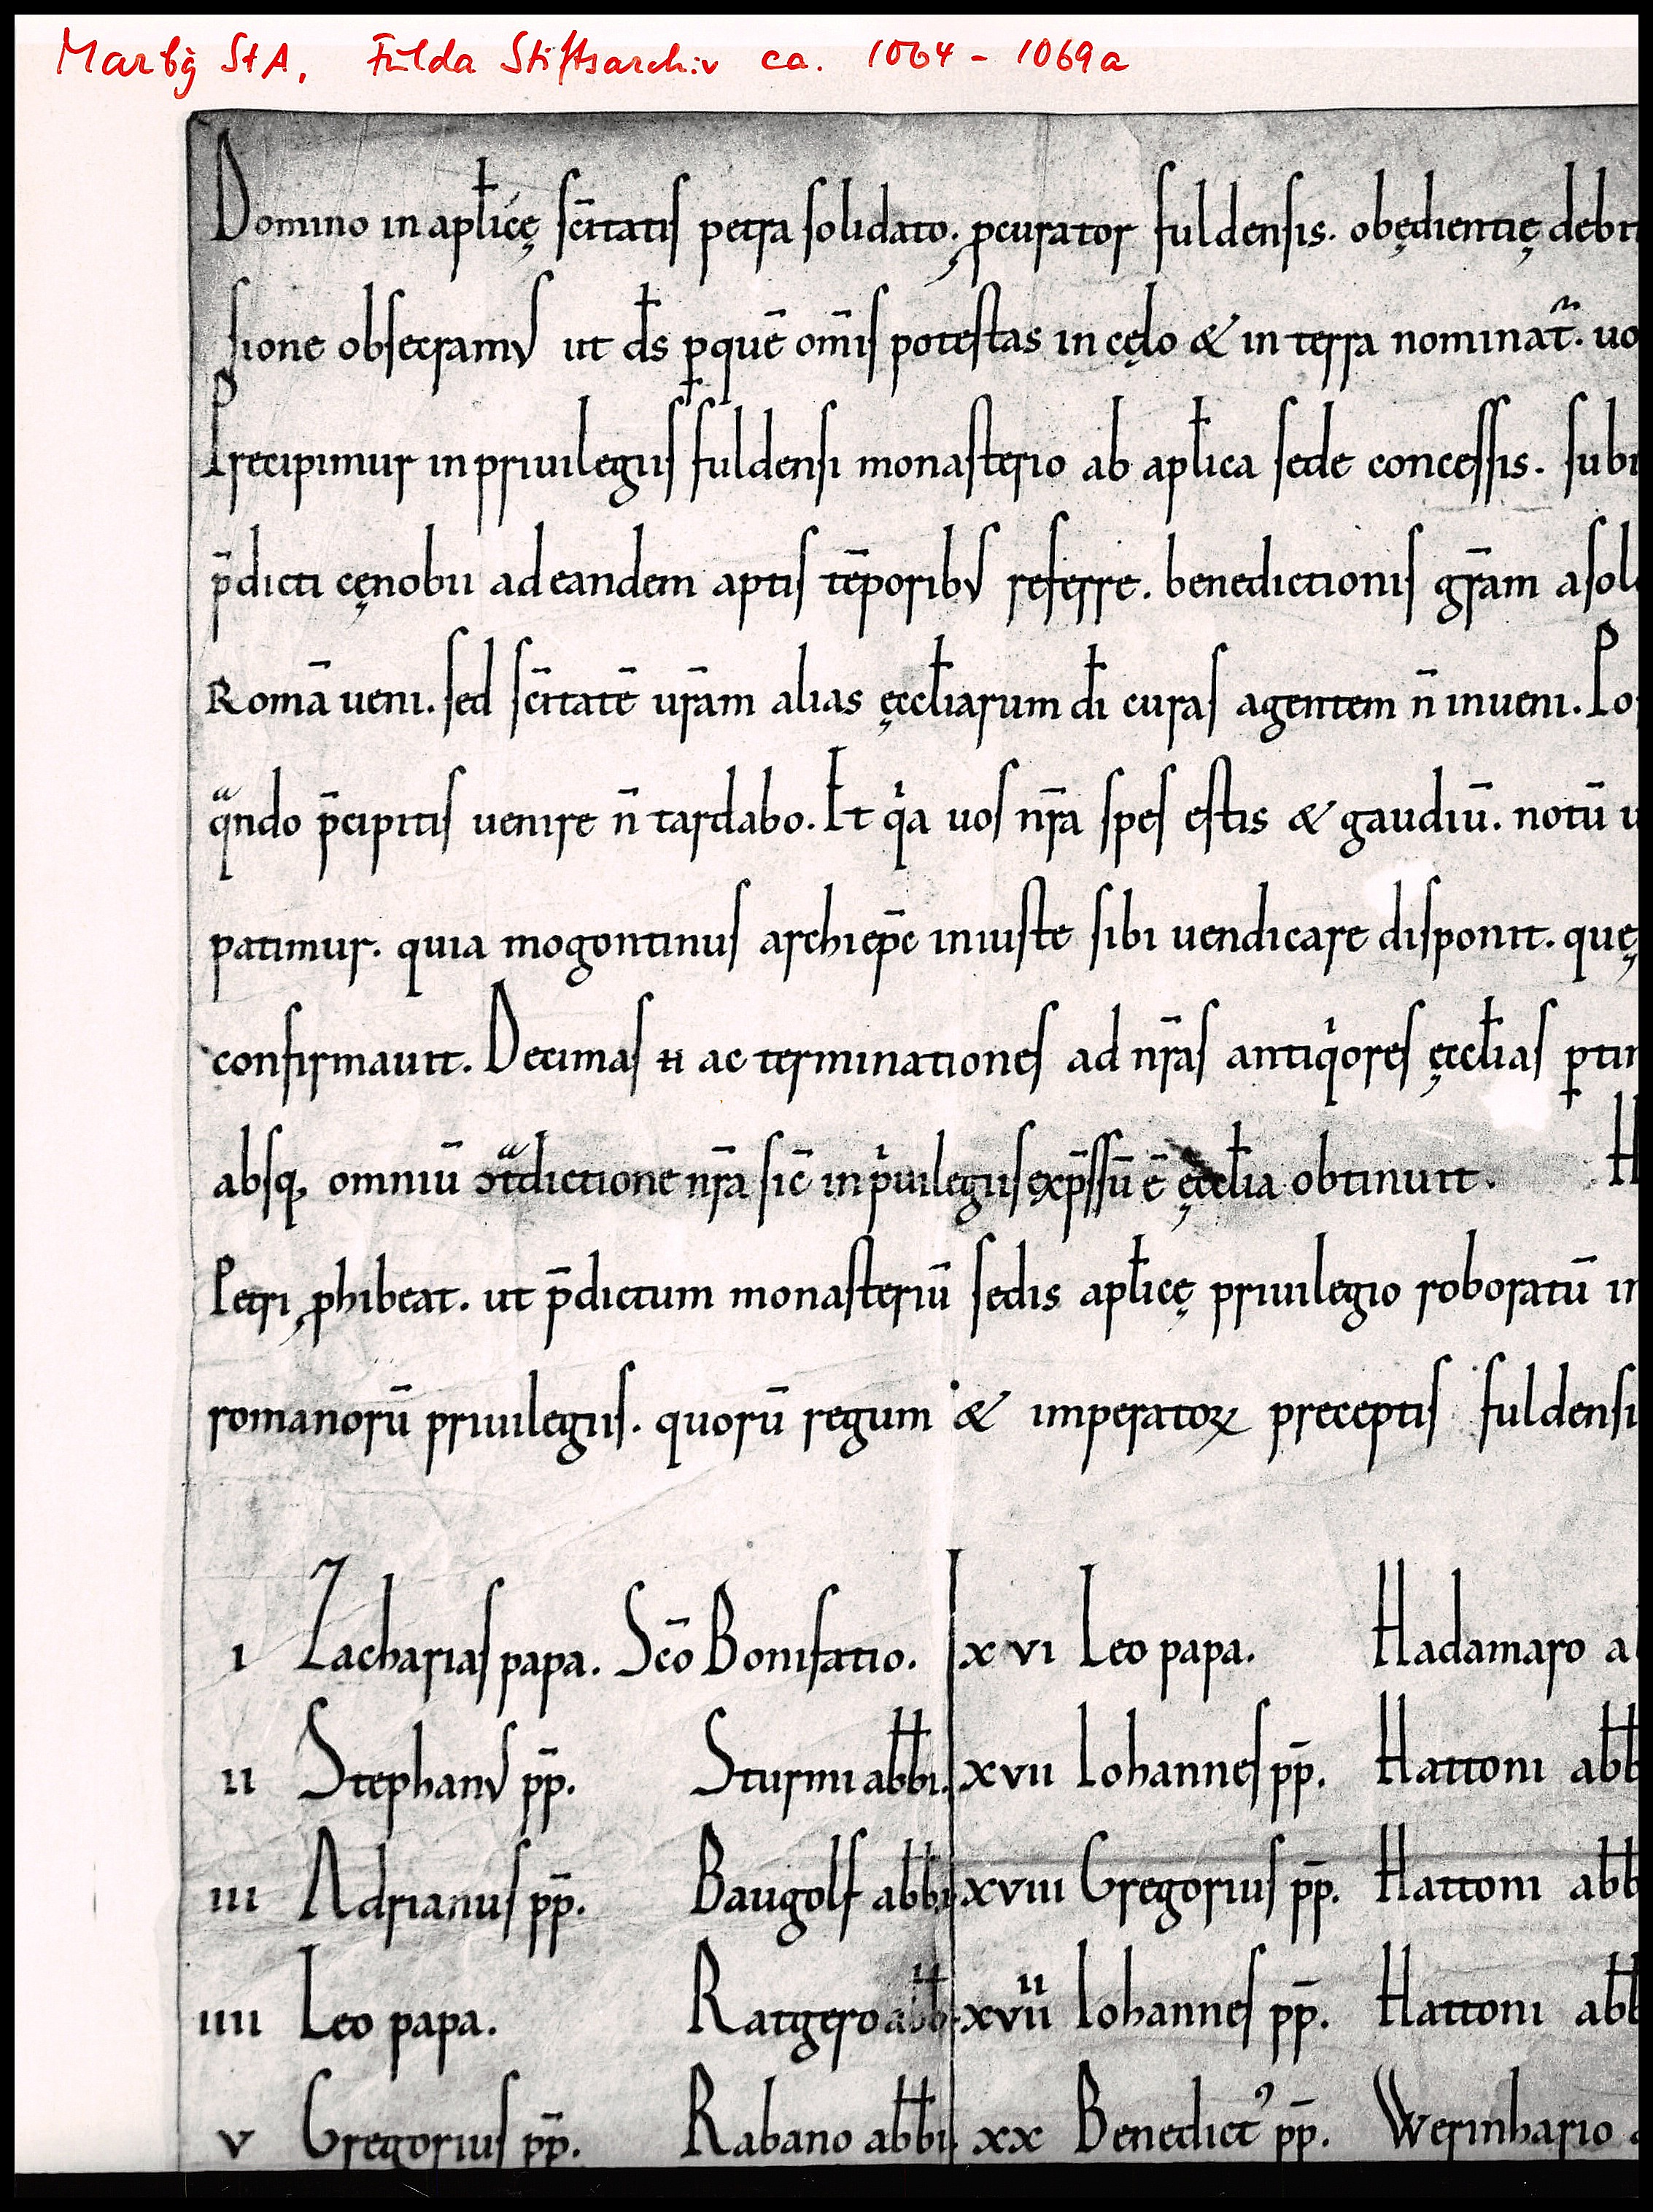 Marbg StA, Fulda Stiftsarchiv ca. 1064 - 1069a
Domino in apl̄icę sc̄itatis petra solidato. ꝓcurator fuldensis. obędientię debi
sione obsecramus ut d̄s ꝑ quē om̄is potestas in cęlo & in terra nominat̄. uo
Precipimur in priuilegiis fuldensi monasterio ab apl̄ica sede concessis. subi
p̄dicti cęnobii ad eandem aptis tēporibus referre. benedictionis gr̄am a sol
Romā ueni. sed sc̄itatē ur̄am alias ęccl̄iarum dī curas agentem n̄ inueni. Po
qͣndo p̄cipitis uenire n̄ tardabo. Et qͥa uos nr̄a spes estis & gaudiū. notū u
patimur. quia mogontinus archiep̄c iniuste sibi uendicare disponit. quę
confirmauit. Decimas u̅ ac terminationes ad nr̄as antiqͥores ęccl̄ias ꝑtin
absq; omniū ↄtͣdictione nr̄a sic̄ in pͥuilegiis exp̄ssū ē ęccl̄ia obtinuit. H
Petri ꝓhibeat. ut p̄dictum monasteriū sedis apl̄icę priuilegio roboratū in
romanorū priuilegiis. quorū regum & imperatoꝝ preceptis fuldensi
i Zacharias papa. Sc̄o Bonifatio. xvi Leo papa. Hadamaro a
ii Stephanus pp̄. Sturmi abb̄i. xvii Iohannes pp̄. Hattoni abb
iii Adrianus pp̄. Baugolf abb̄i xviii Gregorius pp̄. Hattoni abb
iiii Leo papa. Ratgero abb̄ xviiii Iohannes pp̄. Hattoni abb
v Gregorius pp̄. Rabano abb̄i. xx Benedictꝰ pp̄. Werinhario a